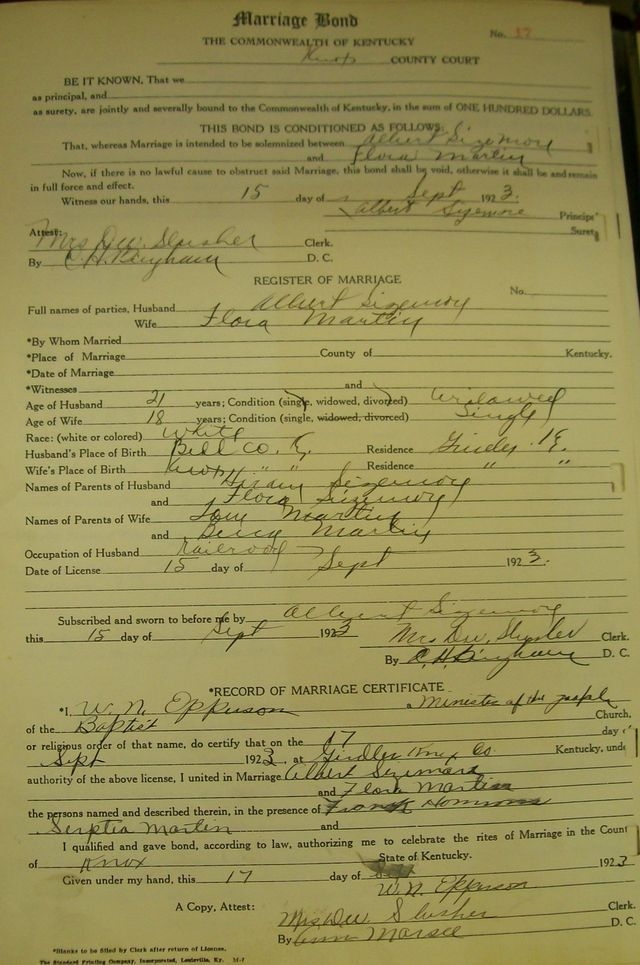 Marriage Bond
No. 17
THE COMMONWEALTH OF KENTUCKY
Knox COUNTY COURT
BE IT KNOWN, That we
as principal, and
as surety, are jointly and severally bound to the Commonwealth of Kentucky, in the sum of ONE HUNDRED DOLLARS.
THIS BOND IS CONDITIONED AS FOLLOWS:
That, whereas Marriage is intended to be solemnized between Albert Sizemore
and Flora Martin
Now, if there is no lawful cause to obstruct said Marriage, this bond shall be void, otherwise it shall be and remain
in full force and effect.
Witness our hands, this 15 day of Sept 1923.
Albert Sizemore Principa
Suret
Attest:
Mrs D.W. Slusher Clerk.
By C.H. Bingham D. C.
REGISTER OF MARRIAGE
No.
Full names of parties, Husband Albert Sizemore
Wife Flora Martin
*By Whom Married
*Place of Marriage County of Kentucky.
*Date of Marriage
*Witnesses and
Age of Husband 21 years; Condition (single, widowed, divorced) widowed
Age of Wife 18 years; Condition (single, widowed, divorced) Single
Race: (white or colored) White
Husband's Place of Birth Bell Co. Ky. Residence Girdler Ky.
Wife's Place of Birth Knox " " Residence " "
Names of Parents of Husband Hiram Sizemore
and Flora Sizemore
Names of Parents of Wife Tom Martin
and Martin
Occupation of Husband Railroad
Date of License 15 day of Sept 1923.
Subscribed and sworn to before me by Albert Sizemore
this 15 day of Sept 1923
Mrs D.W. Slusher Clerk.
By C.H. Bingham D. C.
*RECORD OF MARRIAGE CERTIFICATE
*I, W. N. Epperson a Minister of the Gospel
of the Baptist Church,
or religious order of that name, do certify that on the 17 day
Sept 1923, at Girdler Knox Co. Kentucky, unde
authority of the above license, I united in Marriage Albert Sizemore
and Flora Martin
the persons named and described therein, in the presence of Frank Hammons
Martin and
I qualified and gave bond, according to law, authorizing me to celebrate the rites of Marriage in the Count
of Knox State of Kentucky.
Given under my hand, this 17 day of 1923
W. N. Epperson
A Copy, Attest:
Mrs D.W. Slusher Clerk.
By Ann Marsee D. C.
*Blanks to be filled by Clerk after return of License.
The Standard Printing Company, Incorporated, Louisville, Ky. M-1